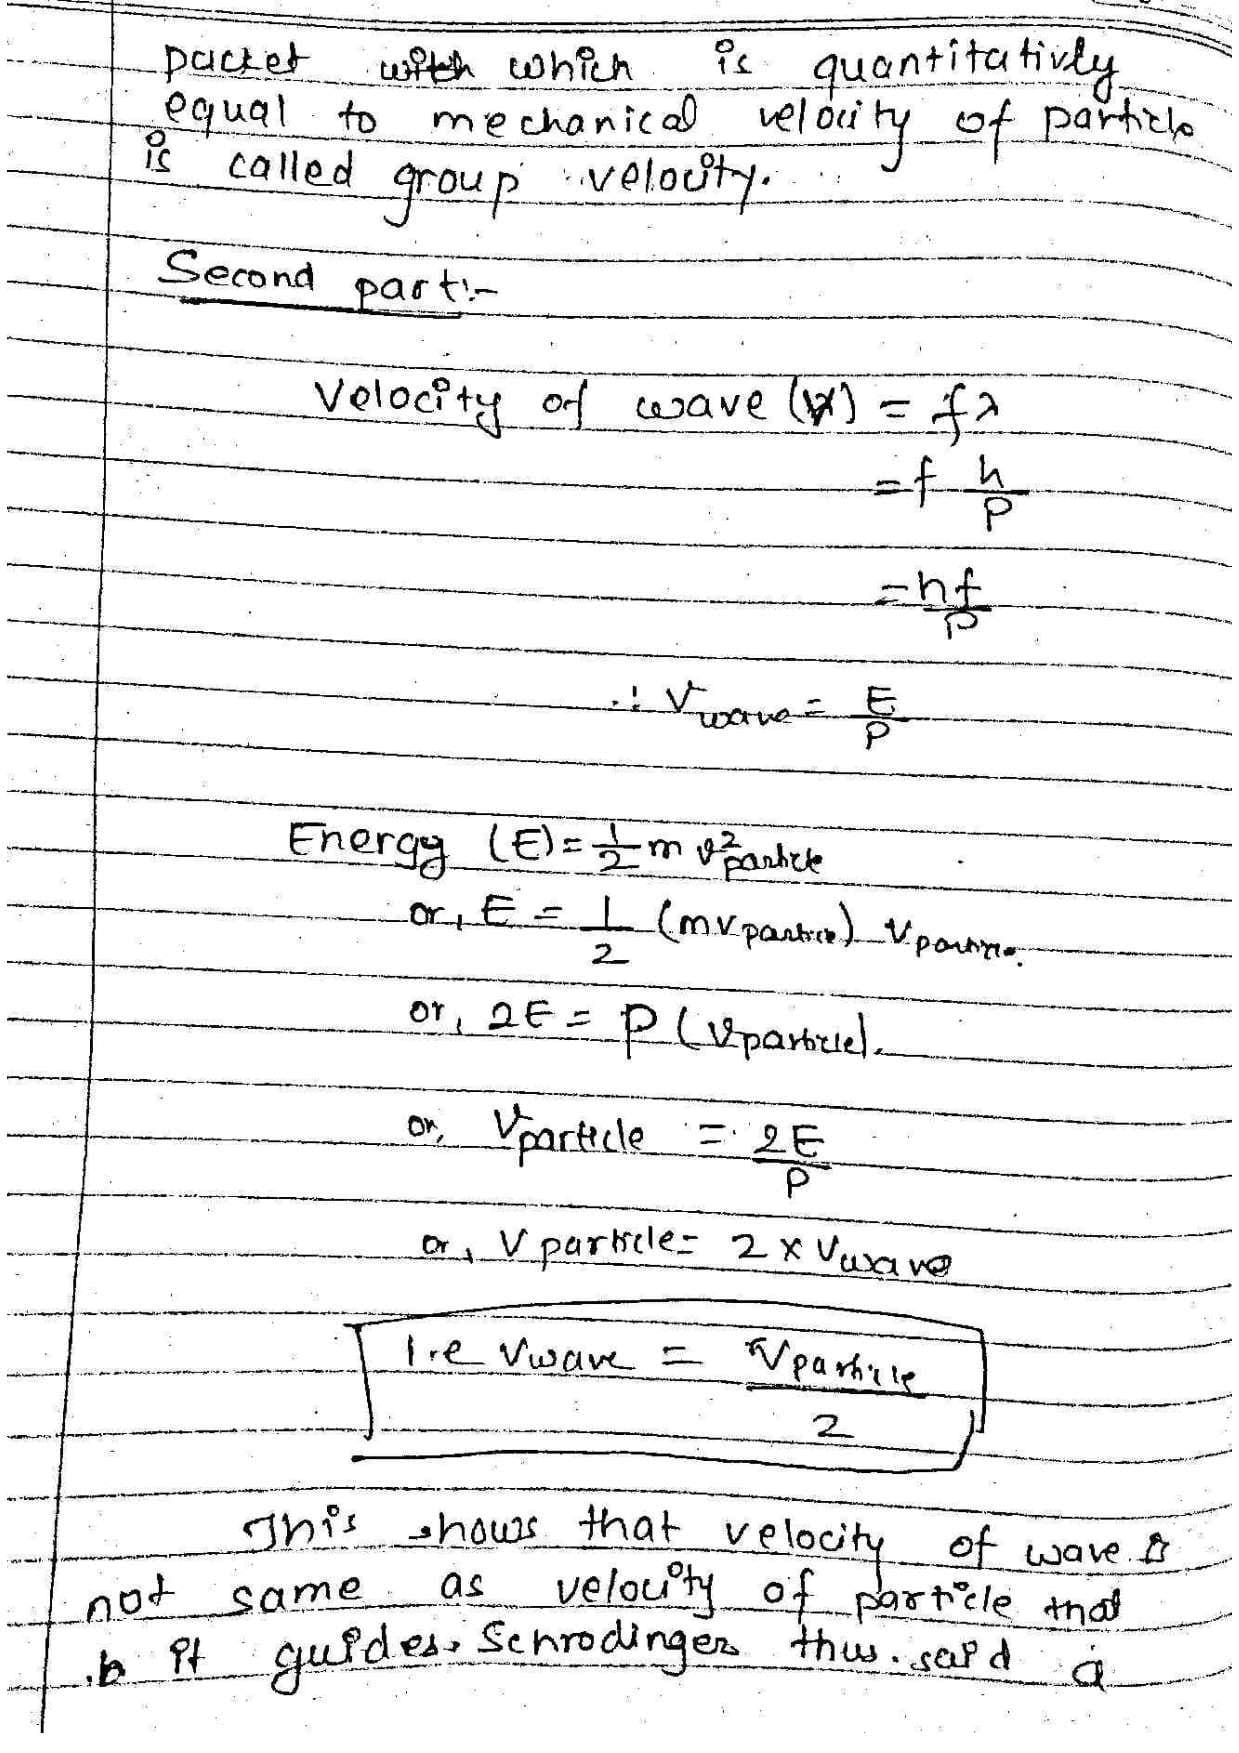 packet with which is quantitativly
equal to mechanical velocity of particle
is called group velocity.
Second part:-
Velocity of wave (V) = fλ
= f h/P
= hf/P
∴ Vwave = E/P
Energy (E) = 1/2 m v²particle
or, E = 1/2 (mvparticle) vparticle.
or, 2E = P (vparticle).
or, Vparticle = 2E/P
or, Vparticle = 2 x Vwave
I.e Vwave = Vparticle/2
This shows that velocity of wave is
not same as velocity of particle that
it guides. Schrodinger thus said a